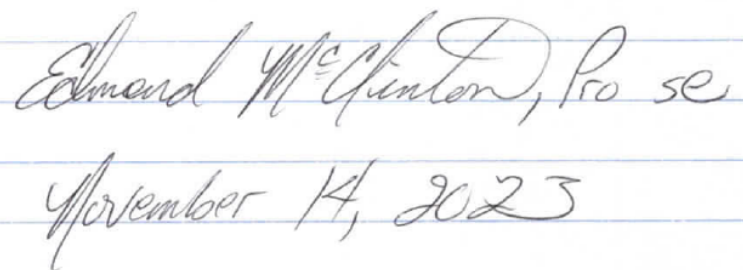 Edmond McClinton, Pro se
November 14, 2023